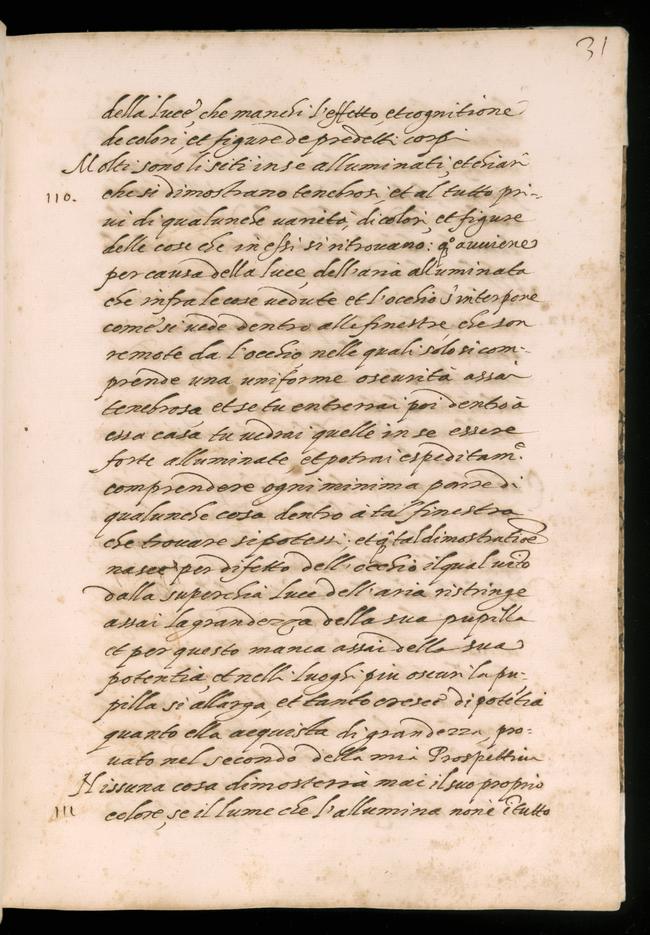 31
della luce, che manchi l'effetto, et cognitione
de colori, et figure de predetti corpi
Molti sono li siti in se alluminati, et chiari
110. che si dimostrano tenebrosi, et al tutto pri-
vi di qualunche varietà, di colori, et figure
delle cose che in essi si ritrovano: q.º avviene
per causa della luce, dell'aria alluminata
che infra le cose vedute et l'occhio s'interpone
come si vede dentro alle finestre, che son
remote da l'occhio, nelle quali solo si com-
prende una uniforme oscurità assai
tenebrosa, et se tu entrerai poi dentro à
essa casa, tu vedrai quelle in se essere
forte alluminate, et potrai espeditam.e
comprendere ogni minima parte di
qualunche cosa dentro à tal finestra
che trovare si potessi, et q.ª tal dimostratioẽ
nasce per difetto dell'occhio, il qual vĩto
dalla superchia luce dell'aria ristringe
assai la grandezza della sua pupilla
et per questo manca assai della sua
potentia, et nelli luoghi piu oscuri la pu-
pilla si allarga, et tanto cresce di potẽtia
quanto ella acquista di grandezza, pro-
vato nel secondo della mia Prospettiva
Nissuna cosa dimosterrà mai il suo proprio
111 colore, se il lume che l'allumina non è ĩ tutto